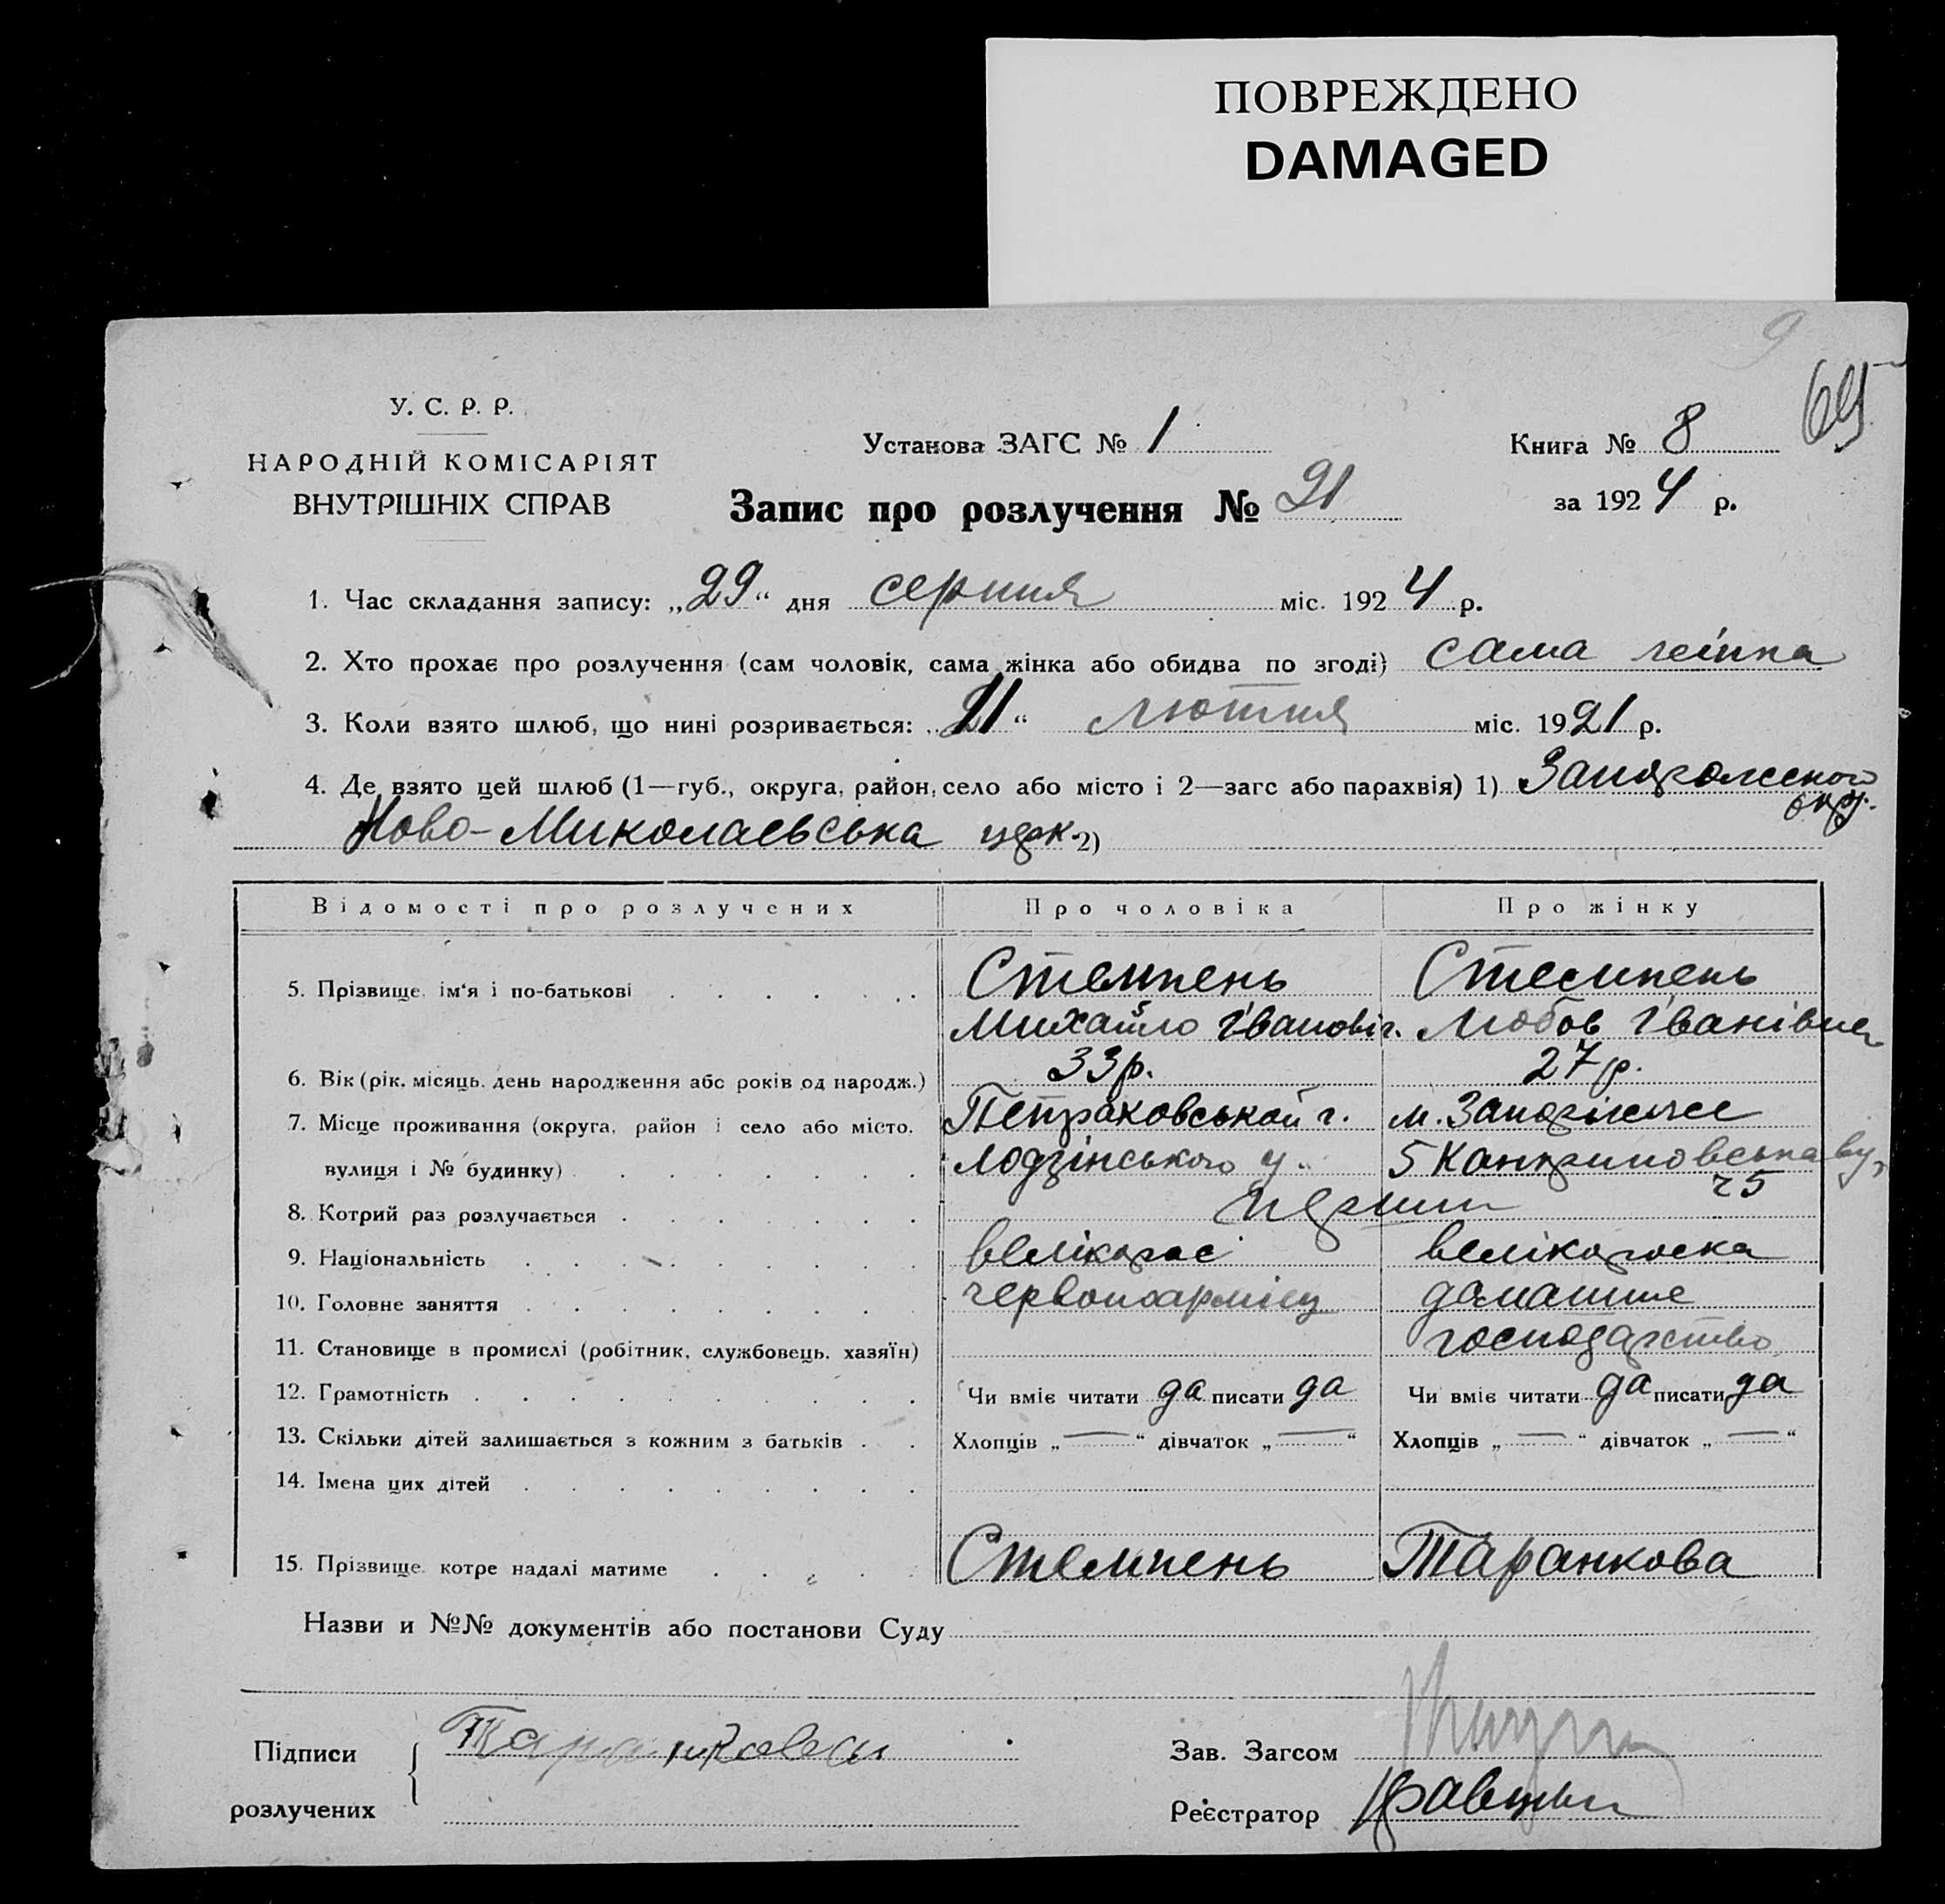 ПОВРЕЖДЕНО
DAMAGED
9
У. С. Р. Р.
НАРОДНІЙ КОМІСАРІЯТ
ВНУТРІШНІХ СПРАВ
Установа ЗАГС № 1
Книга № 8
Запис про розлучення № 21
за 1924 р.
1. Час складання запису: „29“ дня серпня міс. 1924 р.
2. Хто прохає про розлучення (сам чоловік, сама жінка або обидва по згоді) сама жінка
3. Коли взято шлюб, що нині розривається: „21“ лютня міс. 1921 р.
4. Де взято цей шлюб (1—губ., округа, район, село або місто і 2—загс або парахвія) 1) Запорожського
окр.
Ново-Миколаевська церк. 2)
Відомості про розлучених Про чоловіка Про жінку
5. Прізвище, ім'я і по-батькові Стемпень Стемпень
Михайло Івановіч. Любов Іванівна
6. Вік (рік, місяць, день народження або років од народж.) 33 р. 27 р.
7. Місце проживання (округа, район і село або місто, Петраковськой г. м. Запоріжже
вулиця і № будинку) Лодзінського у. 5 Канкриновська вул
25
8. Котрий раз розлучається перший
9. Національність велікорос велікороска
10. Головне заняття червоноармієц домашне
11. Становище в промислі (робітник, службовець, хазяїн) господарство
12. Грамотність Чи вміє читати да писати да Чи вміє читати да писати да
13. Скільки дітей залишається з кожним з батьків Хлопців „—“ дівчаток „—“ Хлопців „—“ дівчаток „—“
14. Імена цих дітей
15. Прізвище, котре надалі матиме Стемпень Таранкова
Назви и №№ документів або постанови Суду
Підписи Таранкова Зав. Загсом
розлучених Реєстратор